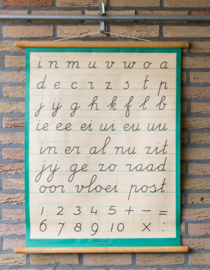 i n m u v w o a
d e c r z s t p
j ij g h k f l b
ie ee ei ui eu uu
in er al nu zit
jij ge zo raad
oor vloer post
1 2 3 4 5 + - =
6 7 8 9 10 × :